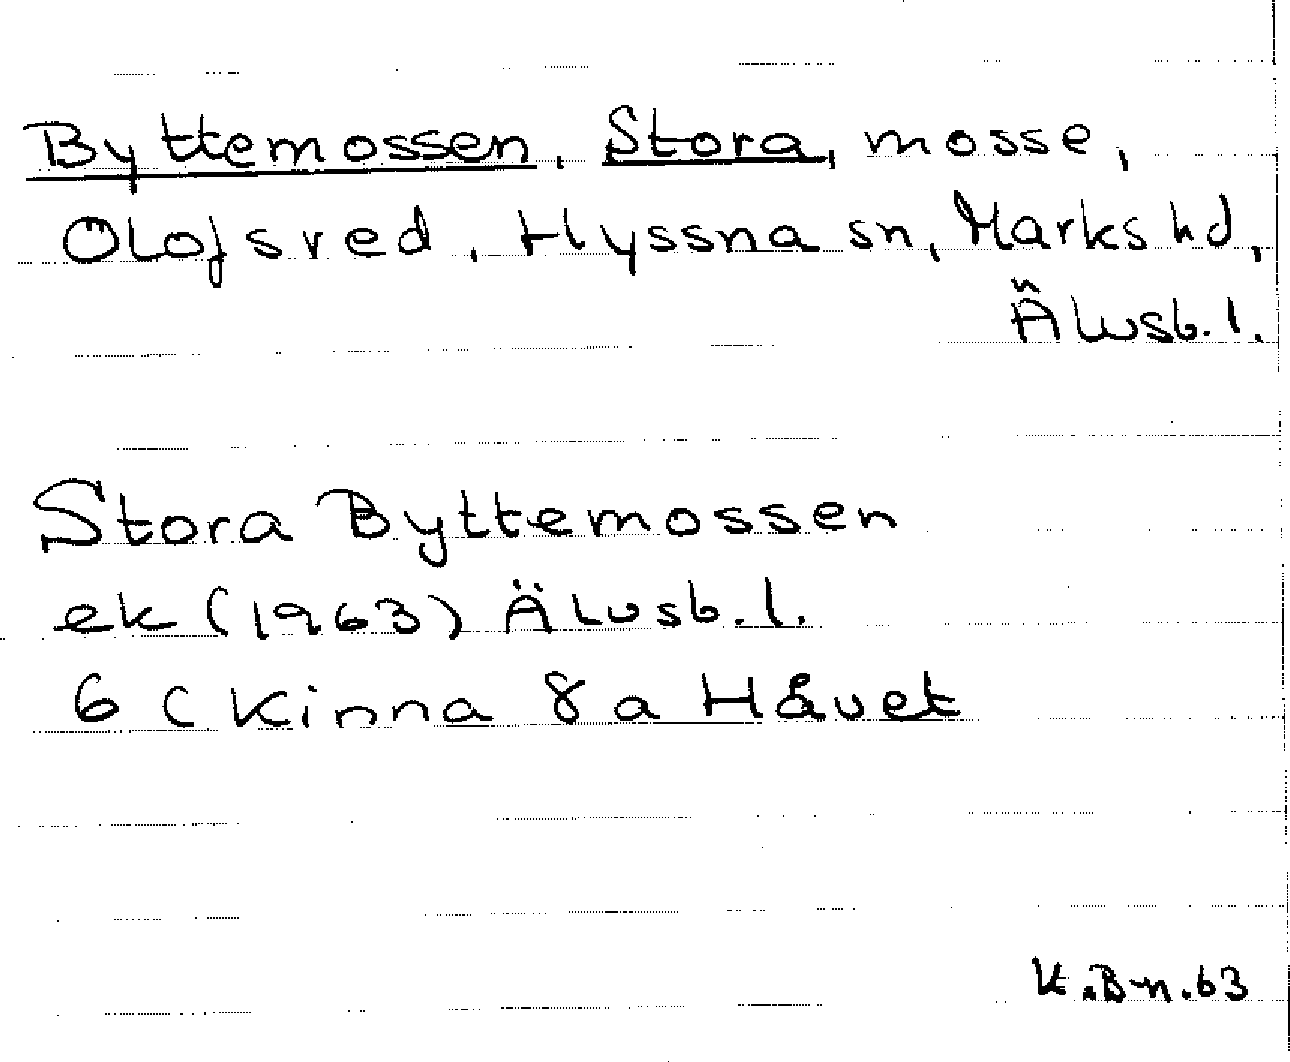 Byttemossen, Stora, mosse,
Olofsred, Hyssna sn, Marks hd,
Älvsb. l.
Stora Byttemossen
ek (1963) Älvsb. l.
6 C Kinna 8 a Håvet
K.Bn.63